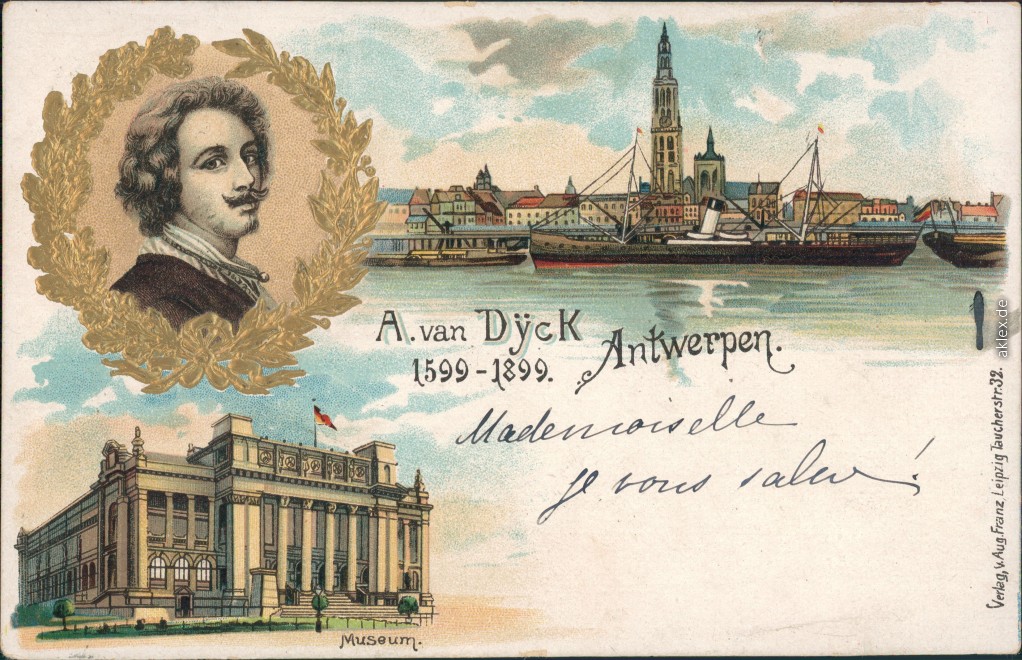 A. van Dÿck
1599-1899.
Antwerpen.
Mademoiselle
je vous salue!
Museum.
Verlag, v. Aug. Franz, Leipzig Taucherstr. 32.
aklex.de